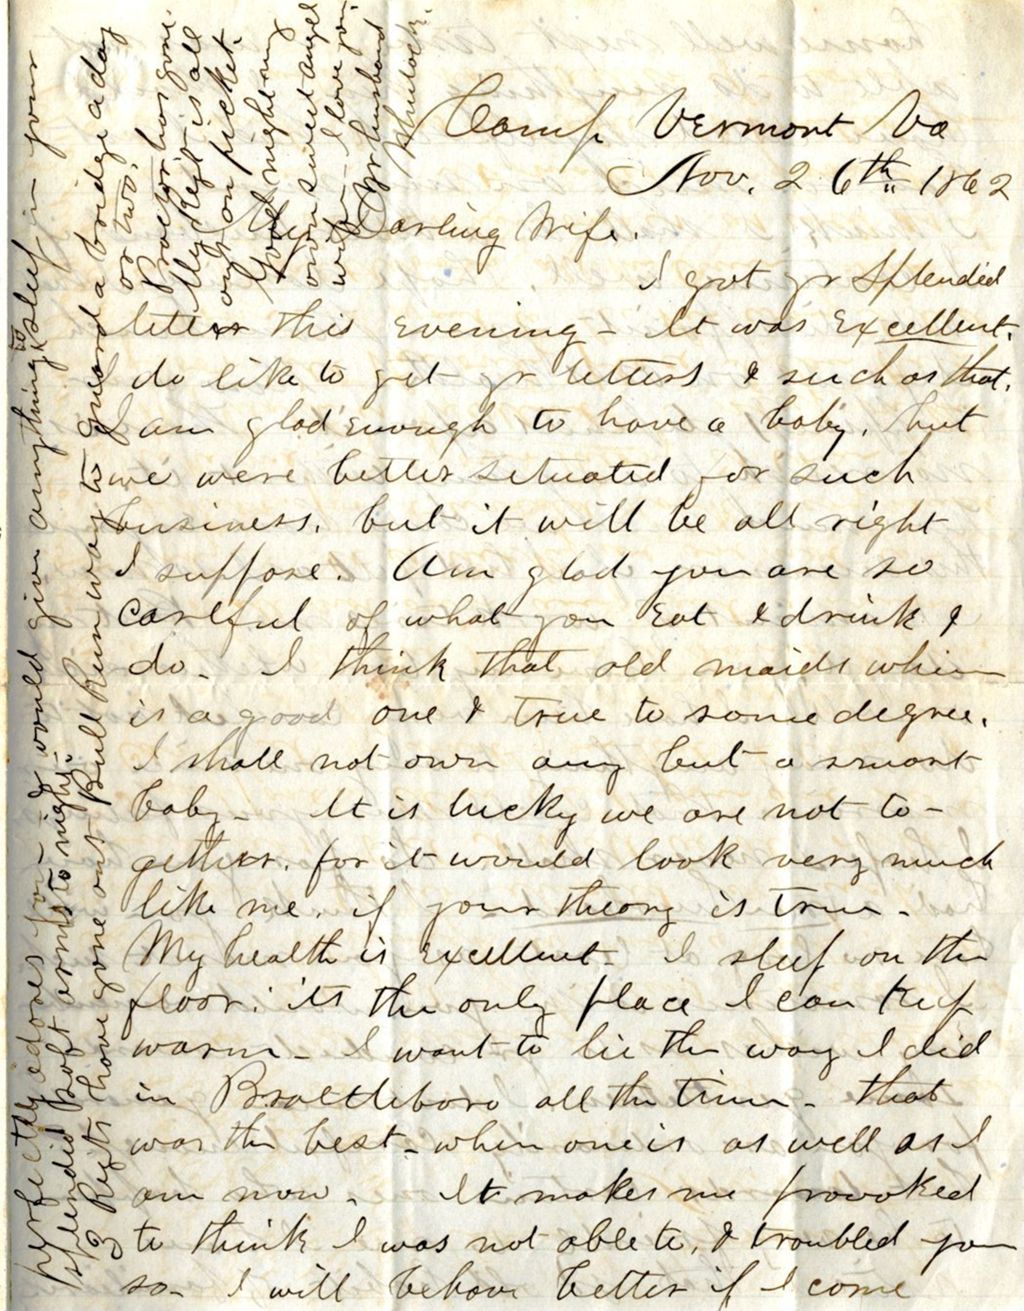 Camp Vermont Va
Nov. 26th 1862
My Darling Wife.
I got yr splendid
letter this evening - It was excellent.
I do like to get yr letters & such as that.
I am glad enough to have a baby. but
we were better situated for such
business. but it will be all right
I suppose. Am glad you are so
careful of what you eat & drink &
do. I think that old maids whim
is a good one & true to some degree.
I shall not own any but a smart
baby - It is lucky we are not to-
gether. for it would look very much
like me. if your theory is true -
My health is excellent - I sleep on the
floor. its the only place I can keep
warm - I want to lie the way I did
in Brattleboro all the time - that
was the best - when one is as well as I
am now. It makes me provoked
to think I was not able to, & troubled you
so - I will behave better if I come
perfectly adores you - I would give anything to sleep in your
splendid soft arms to night.
3 Regts have gone out Bull Run way to guard a bridge a day
or two.
Proctor has gone.
My Regt is all
out on picket.
Good night my
own sweet angel
wife - I love you
Yr husband